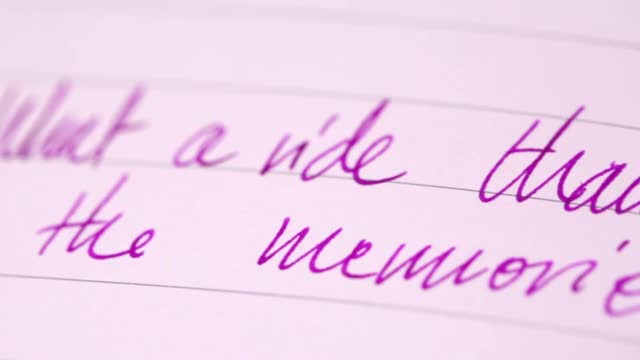 What a ride than
the memorie